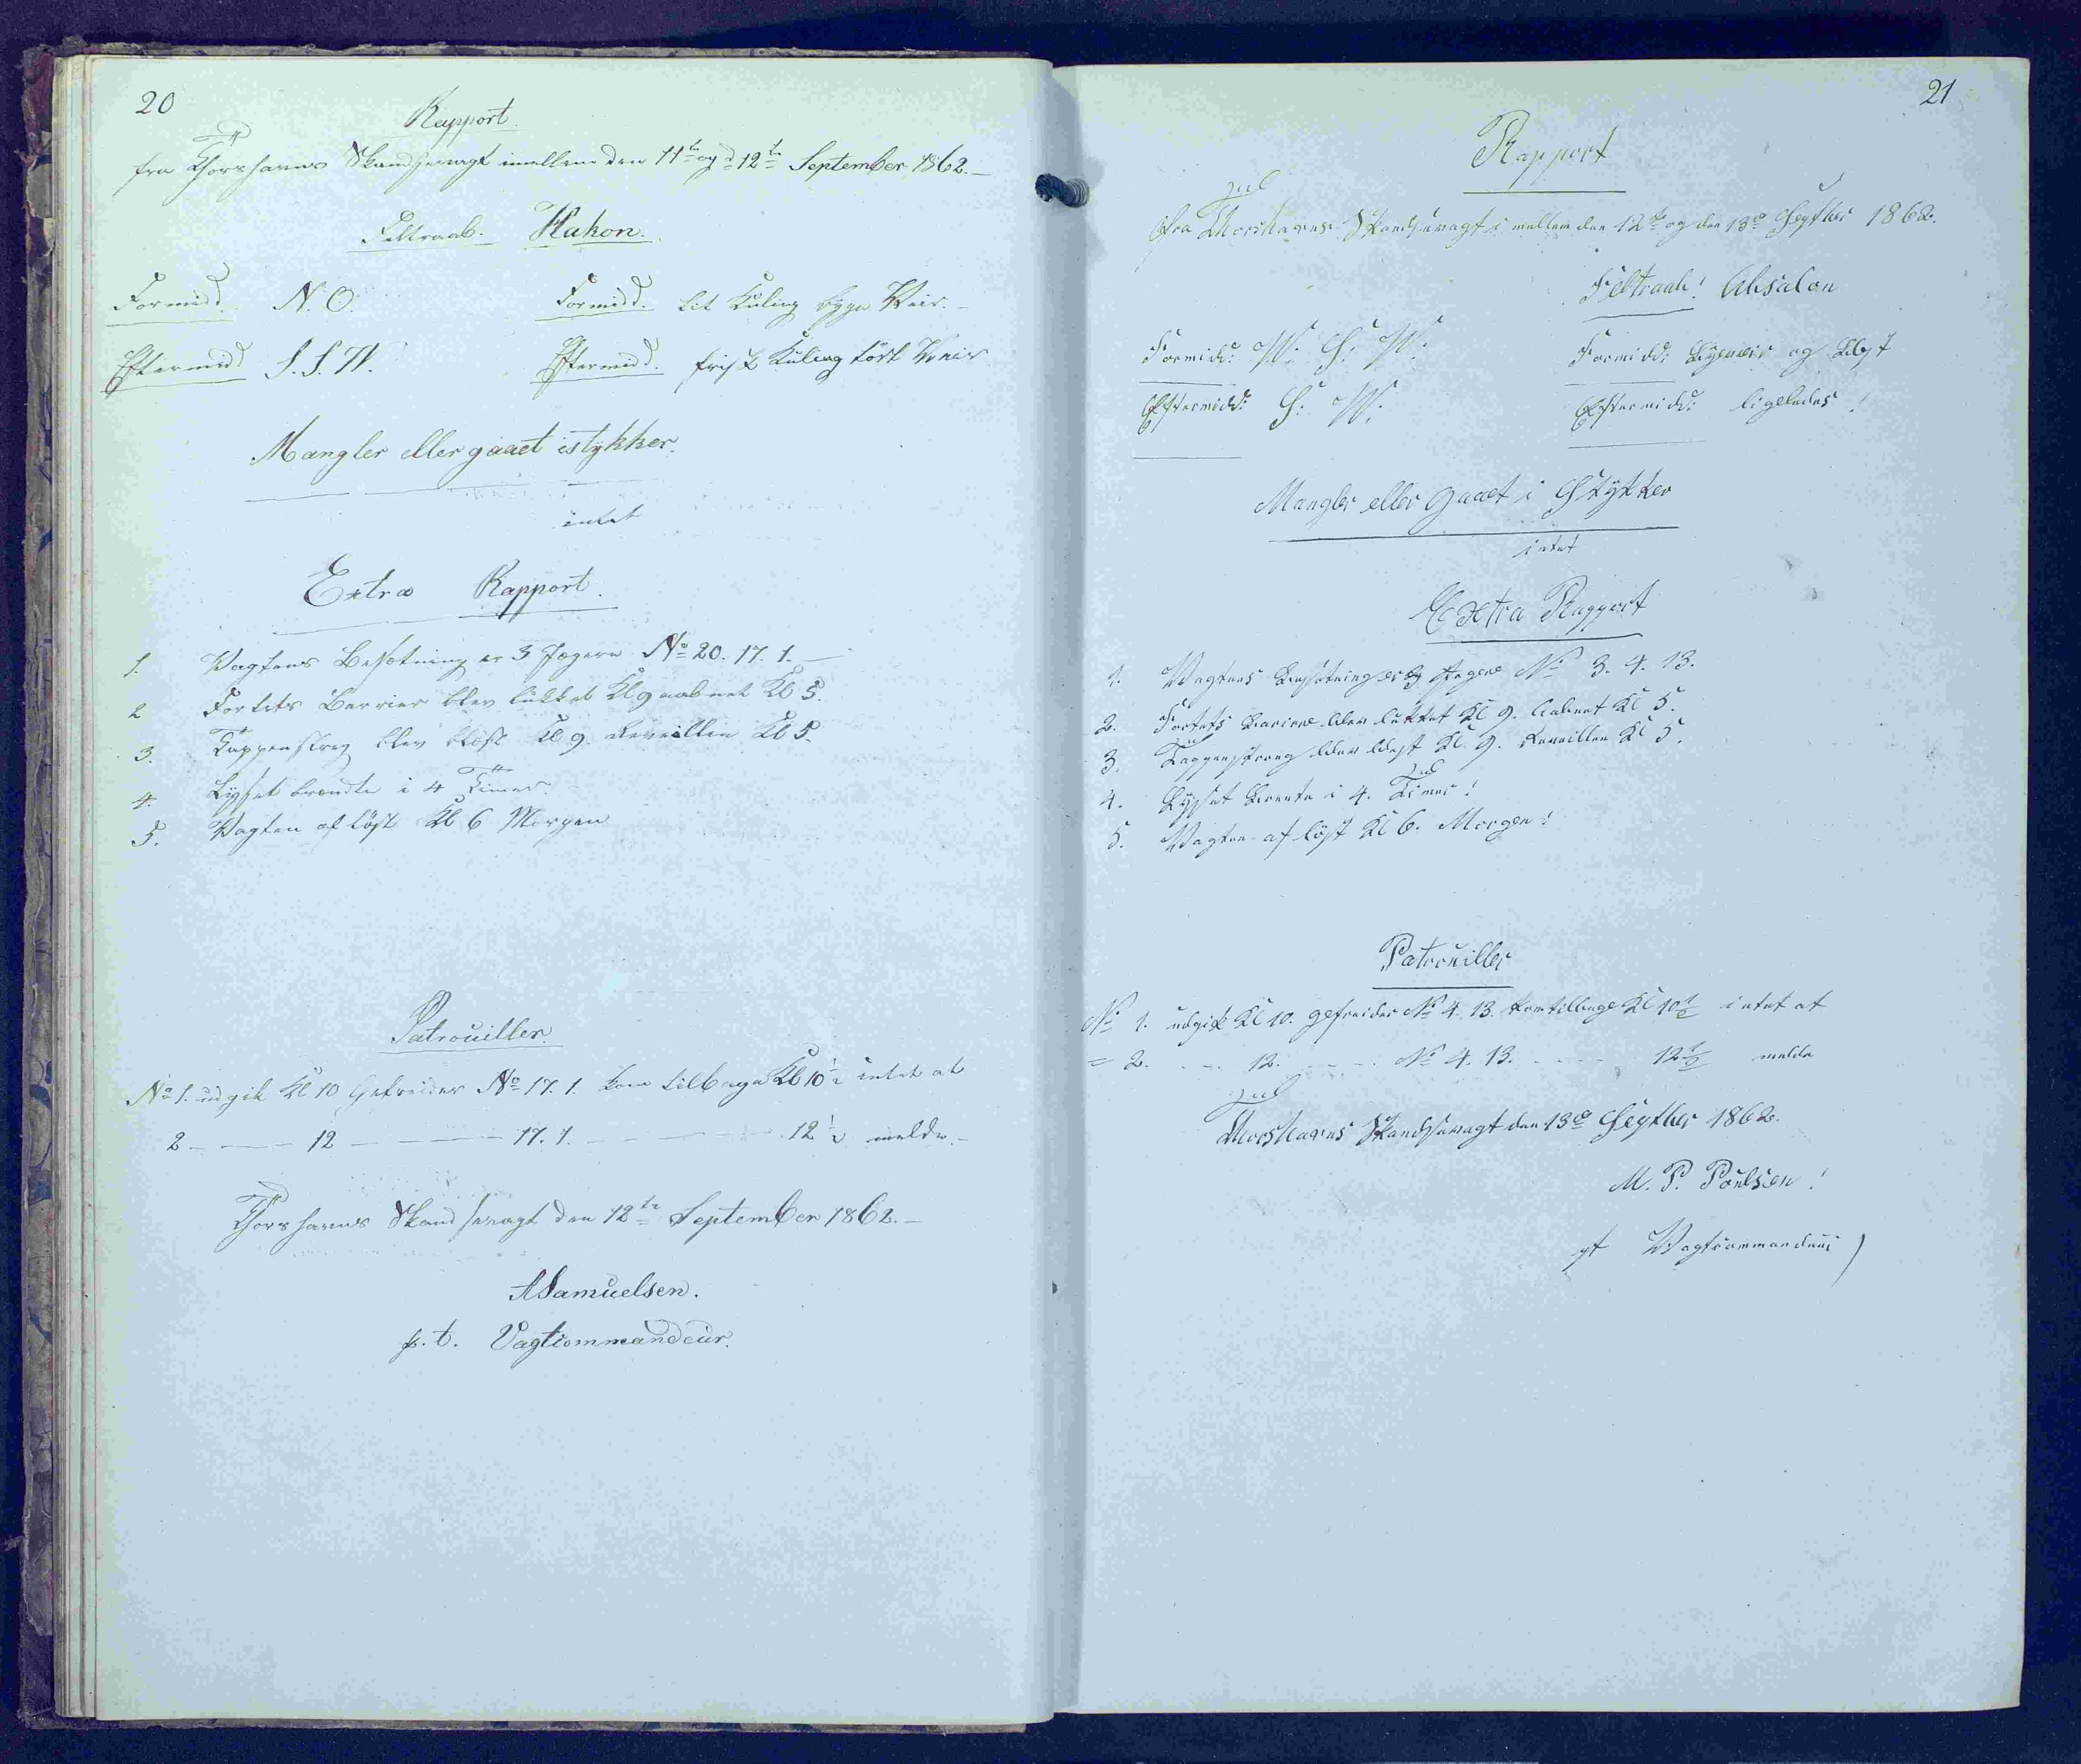 20
Rapport
fra Thorshavns Skandsevagt imellem den 11te og d 12te September 1862.
Feltraab. Hakon.
Formidd. N. O. Formidd. let Kuling bygn Veir.
Eftermidd S. S. W. Eftermidd. frisk Kuling tört Veir
Mangler eller gaaet istykker.
intet
Extra Rapport.
1. Vagtens Besætning er 3 Jægere No 20. 17. 1.
2 Fortets Barrier blev lukket Kl 9 aabnet Kl 5.
3. Tappenstreg blev blæst Kl 9. Reveillen Kl 5.
4. Lyset brændte i 4 Timer.
5. Vagten aflöst Kl 6 Morgen
Patrouiller.
No 1. udgik Kl 10 Gefreider No 17. 1. kom tilbage Kl 10 1/2 intet at
2 - - - 12 - - - 17. 1. - - - 12 1/2 melde.
Thorshavns Skandsevagt den 12te September 1862.
ASamuelsen.
p. t. Vagtcommandeur.
21
Rapport
fra Thorshavns Skandsevagt i mellem den 12te og den 13de Septber 1862.
Feltraab! Absalon
Formidd: W: S: W: Formidd: Bygeveir og Blæst
Eftermidd: S: W: Eftermidd: ligeledes!
Mangler eller gaaet i Stykker
intet
Extra Rapport
1. Vagtens Besætning er 3 Jægere No 3. 4. 13.
2. Fortets Bariere blev lukket Kl 9. Aabnet Kl 5.
3. Tappenstreng blev blæst Kl. 9. Reveillen Kl 5.
4. Lyset brente i 4. Timer!
5. Vagten aflöst Kl 6. Morgen!
Patrouiller
No 1. udgik Kl 10. gefreider No 4. 13. kom tilbage Kl 10 1/2 intet at
= 2. - - 12. - - - No 4. 13. - - - 12 1/2 melde
Thorshavns Skandsevagt den 13de Septber 1862.
M. P. Poulsen!
pt Vagtcommandeur